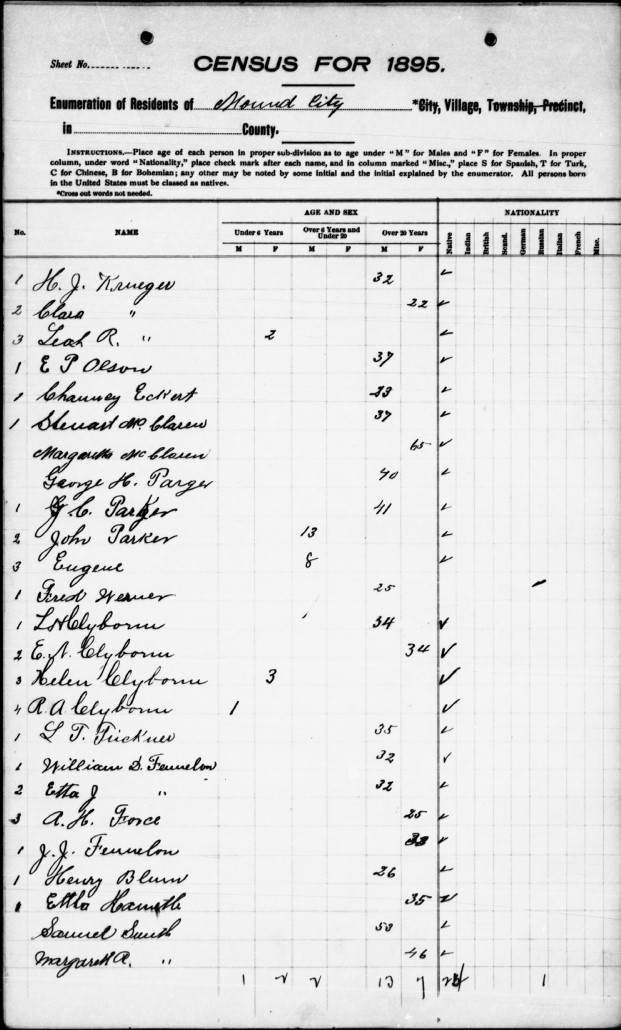 Sheet No.
CENSUS FOR 1895.
Enumeration of Residents of Mound City *City, Village, Township, Precinct,
in County.
INSTRUCTIONS.—Place age of each person in proper sub-division as to age under "M" for Males and "F" for Females. In proper
column, under word "Nationality," place check mark after each name, and in column marked "Misc.," place S for Spanish, T for Turk,
C for Chinese, B for Bohemian; any other may be noted by some initial and the initial explained by the enumerator. All persons born
in the United States must be classed as natives.
*Cross out words not needed.
AGE AND SEX NATIONALITY
No. NAME Under 6 Years Over 6 Years and Under 20 Over 20 Years Native Indian British Scand. German Russian Italian French Misc.
M F M F M F
1 H. J. Krueger 32 ✓
2 Clara " 22 ✓
3 Leah R. " 2 ✓
1 E P Olson 37 ✓
1 Chauncey Eckert 23 ✓
1 Stewart Mc Claren 37 ✓
Margaretta Mc Claren 65 ✓
George H. Parger 40 ✓
1 G. C. Parker 41 ✓
2 John Parker 13 ✓
3 Eugene 8 ✓
1 Fred Werner 25
1 L H Clyborne 34 ✓
2 E. A. Clyborne 34 ✓
3 Helen Clyborne 3 ✓
4 R. A Clyborne 1 ✓
1 L. T. 35 ✓
1 William D. Fennelon 32 ✓
2 Etta J " 32 ✓
3 A. H. Force 25 ✓
1 J. J. Fennelon 33 ✓
1 Henry Blum 26 ✓
1 Etta 35 ✓
Samuel Smith 50 ✓
Margarett R. " 46 ✓
1 2 2 13 7 24 1